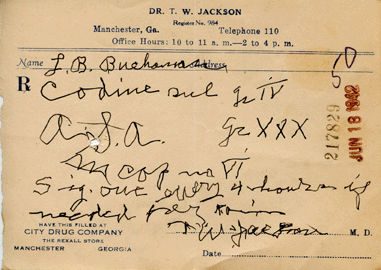 DR. T. W. JACKSON
Register No. 984
Manchester, Ga. Telephone 110
Office Hours: 10 to 11 a. m.—2 to 4 p. m.
Name L. B. Buchanan Address
R Codine sul gr IV
A.S.A. gr XXX
M cap no VI
Sig. one every 4 hours if
needed for pain
T W Jackson M. D.
HAVE THIS FILLED AT
CITY DRUG COMPANY
THE REXALL STORE
MANCHESTER GEORGIA
Date
217829
JUN 18 1942